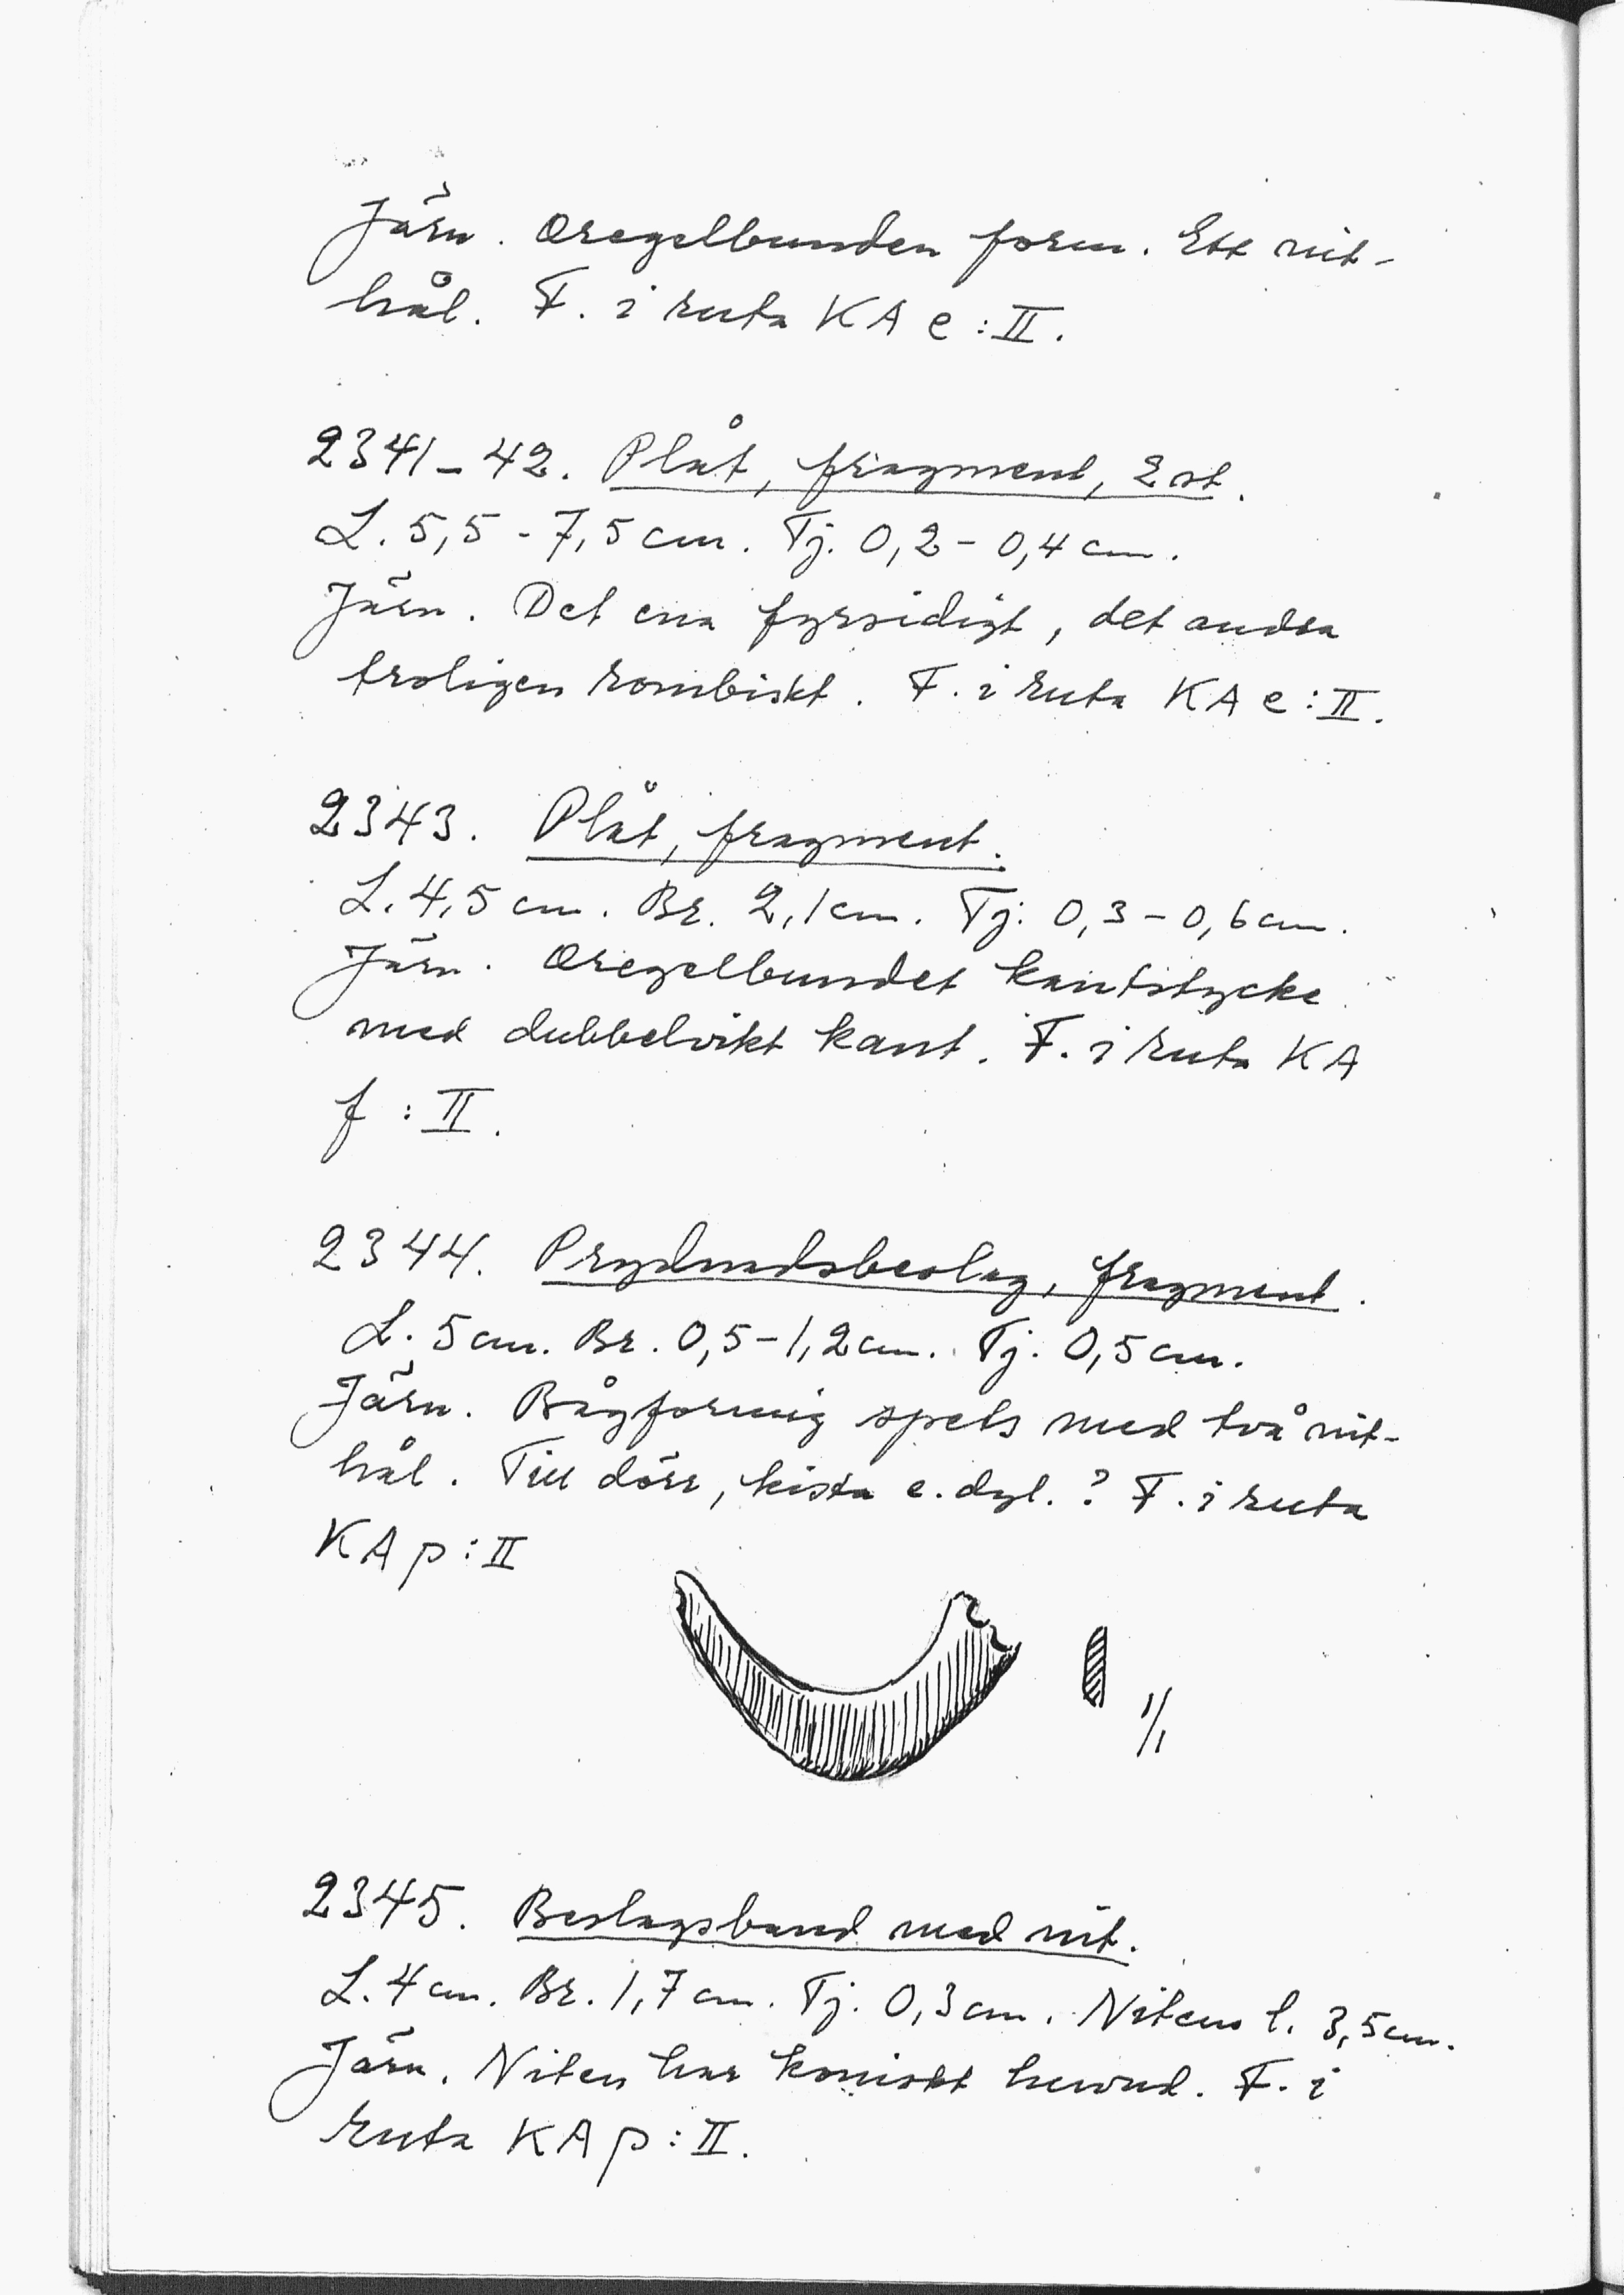 Järn. Oregelbunden form. Ett nit-
hål. F. i ruta KA e:II.
2341-42. Plåt, fragment, 2 st.
L. 5,5-7,5 cm. Tj. 0,2-0,4 cm.
Järn. Det ena fyrsidigt, det andra
troligen rombiskt. F. i ruta KA e:II.
2343. Plåt, fragment.
L. 4,5 cm. Br. 2,1 cm. Tj. 0,3-0,6 cm.
Järn. Oregelbundet kantstycke
med dubbelvikt kant. F. i ruta KA
f:II.
2344. Prydnadsbeslag, fragment.
L. 5 cm. Br. 0,5-1,2 cm. Tj. 0,5 cm.
Järn. Bågformig spets med två nit-
hål. Till dörr, kista e.dyl.? F. i ruta
KA p:II
1/1
2345. Beslagsband med nit.
L. 4 cm. Br. 1,7 cm. Tj. 0,3 cm. Nitens l. 3,5 cm.
Järn. Niten har koniskt huvud. F. i
ruta KA p:II.